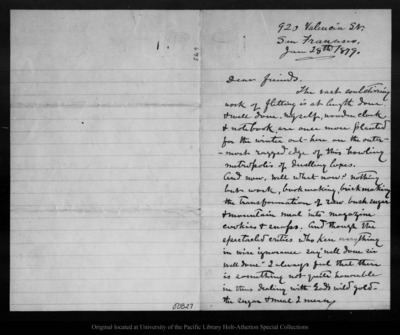 920 Valencia St.
San Francisco,
Jan 28th 1879.
Dear friends.
The vast soul stirring
work of flitting is at length done
& well done. myself, wooden clock
& notebook are once more planted
for the winter out here on the outer-
-most ragged edge of this howling
metropolis of dwelling boxes.
And now, well what now? nothing
but work, bookmaking, brickmaking
the transformation of raw bush sugar
& mountain meal into magazine
cookies & snaps. And though the
spectacled critics who ken everything
in wise ignorance say "well done sir
well done" I always feel that there
is something not quite honorable
in thus dealing with God's wild gold-
the sugar & meal I mean,
00827
Original located at University of the Pacific Library Holt-Atherton Special Collections